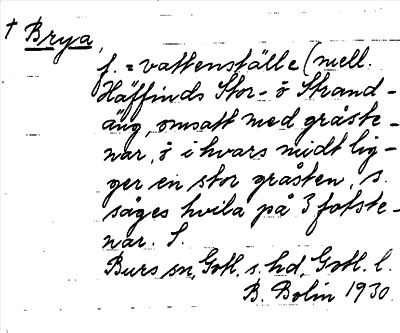 † Brya,
f. = vattenställe (mell.
Häffinds Stor- o Strand-
äng, omsatt med gråste-
nar, o i hvars midt lig-
ger en stor gråsten, s.
säges hvila på 3 fotste-
nar. S.
Burs sn, Gotl. s. hd, Gotl. l.
B. Bolin 1930.